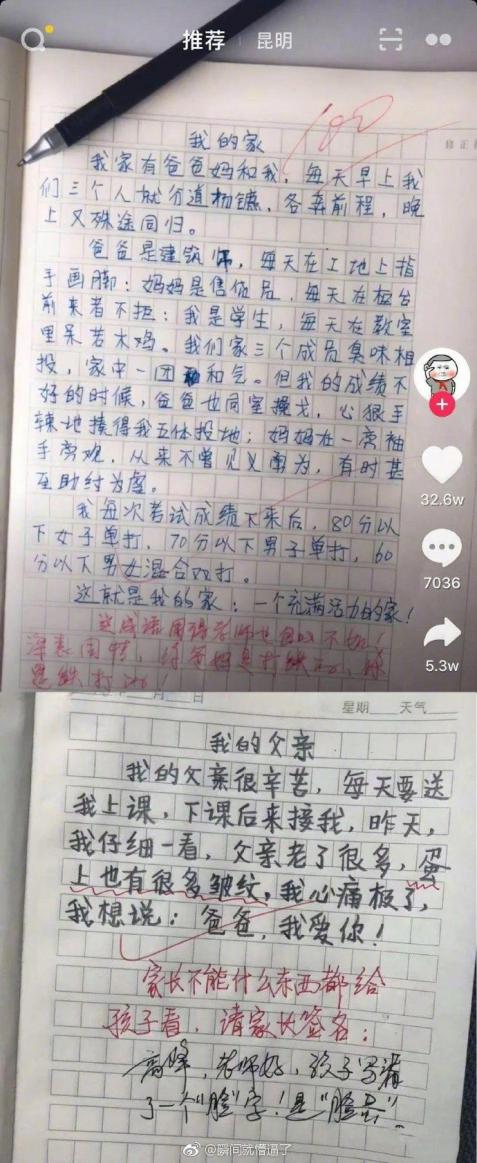 推荐 昆明
100
我的家
我家有爸爸妈和我，每天早上我
们三个人就分道扬镳，各奔前程，晚
上又殊途同归。
爸爸是建筑师，每天在工地上指
手画脚；妈妈是售货员，每天在柜台
前来者不拒；我是学生，每天在教室
里呆若木鸡。我们家三个成员臭味相
投，家中一团和气。但我的成绩不
好的时候，爸爸也同室操戈，心狠手
辣地揍得我五体投地；妈妈在一旁袖
手旁观，从来不曾见义勇为，有时甚
至助纣为虐。
我每次考试成绩下来后，80分以
下女子单打，70分以下男子单打，60
分以下男女混合双打。
这就是我的家：一个充满活力的家！
这成语用得老师也自叹不如！
深表同情，你爸妈是打铁的，你
是铁打的！
32.6w
7036
5.3w
星期 天气
我的父亲
我的父亲很辛苦，每天要送
我上课，下课后来接我，昨天，
我仔细一看，父亲老了很多，蛋
上也有很多皱纹，我心痛极了，
我想说：爸爸，我爱你！
家长不能什么东西都给
孩子看，请家长签名：
老师好，孩子写漏
了一个"脸"字！是"脸蛋"
@瞬间就懵逼了